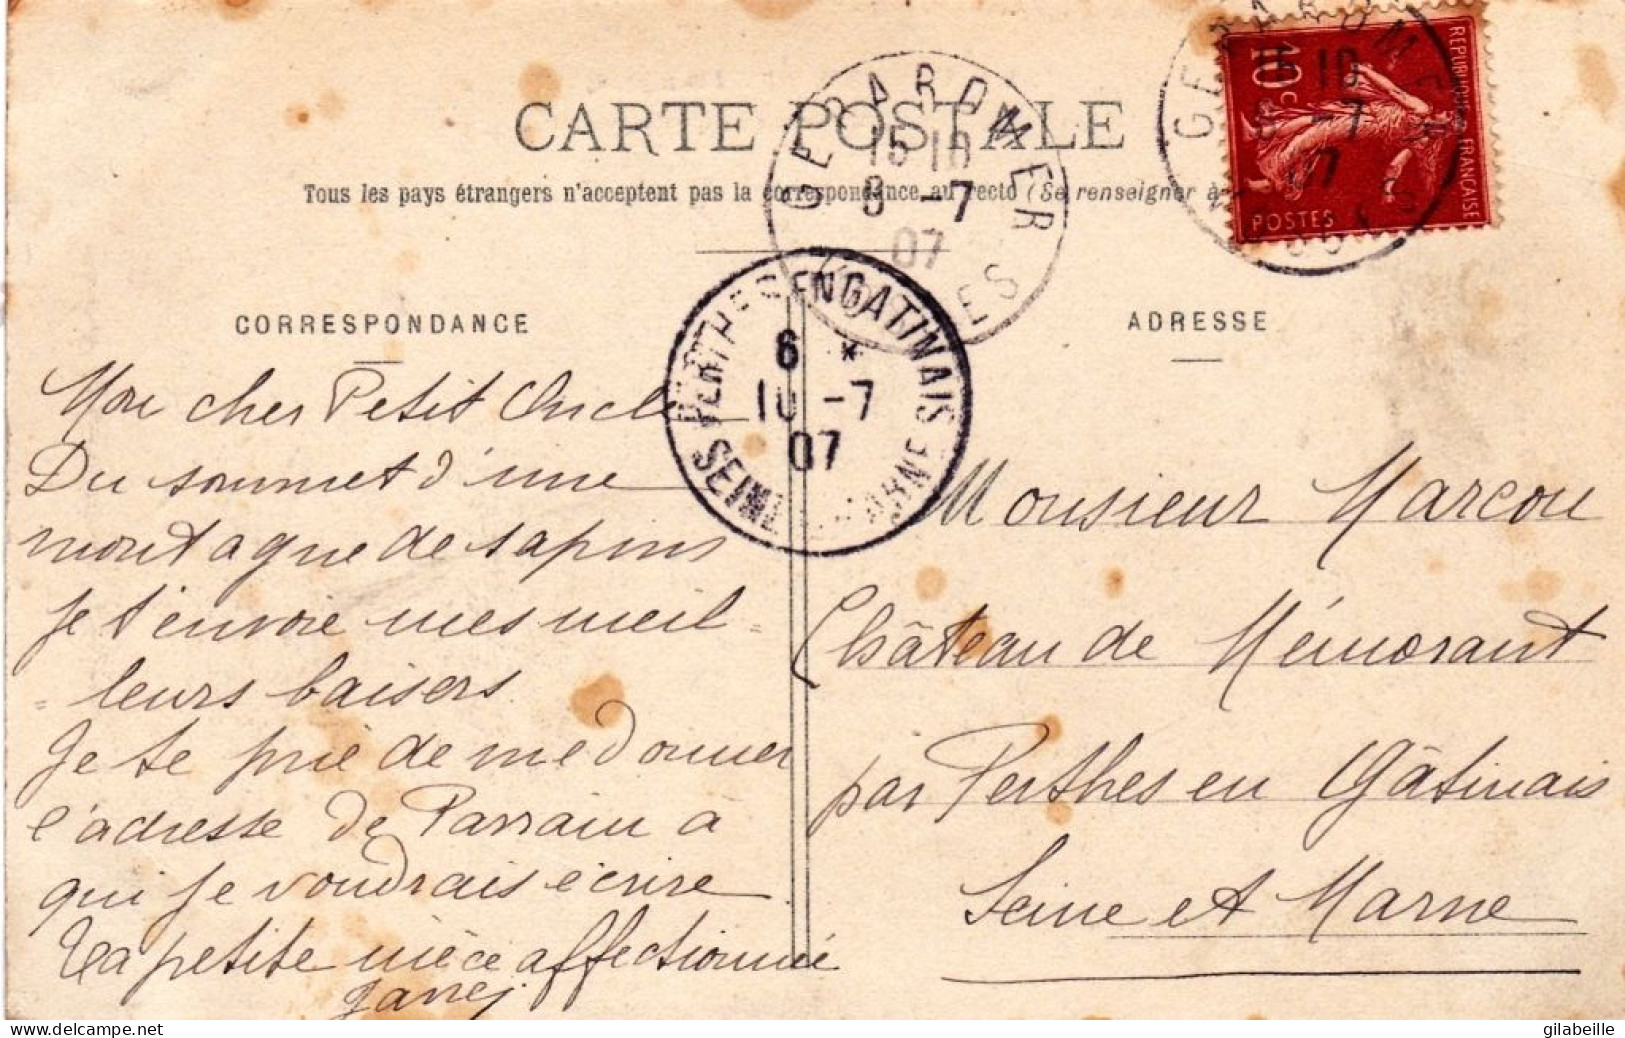 CARTE POSTALE
Tous les pays étrangers n'acceptent pas la correspondance au recto (Se renseigner à
REPUBLIQUE FRANÇAISE
10 c
POSTES
GERARDMER
15 10
-7
07
GERARDMER
15 10
8 -7
07
VOSGES
PERTHES EN GATINAIS
6 *
10 -7
07
SEINE ET MARNE
CORRESPONDANCE
Mon cher Petit Oncle
Du sommet d'une
montagne de sapins
Je t'envoie mes meil=
=leurs baisers.
Je te prie de me donner
l'adresse de Parrain à
qui je voudrais écrire
Ta petite nièce affectionnée
ADRESSE
Monsieur Marcou
Château de Mémorant
par Perthes en Gâtinais
Seine et Marne
delcampe.net
gilabeille